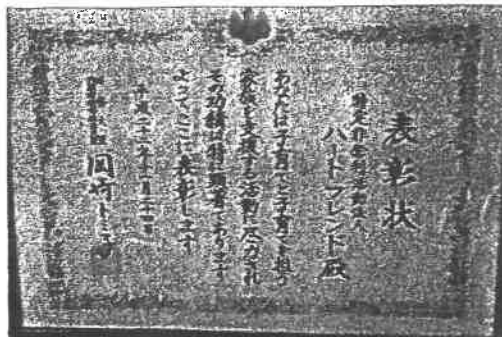 表彰状
特定非営利活動法人
ハートフレンド殿
あなたは子育てと子育てを担う
家族を支援する活動に尽力され
その功績は特に顕著であります
よってここに表彰します
平成二十一年十一月二十一日
岡崎トミ子